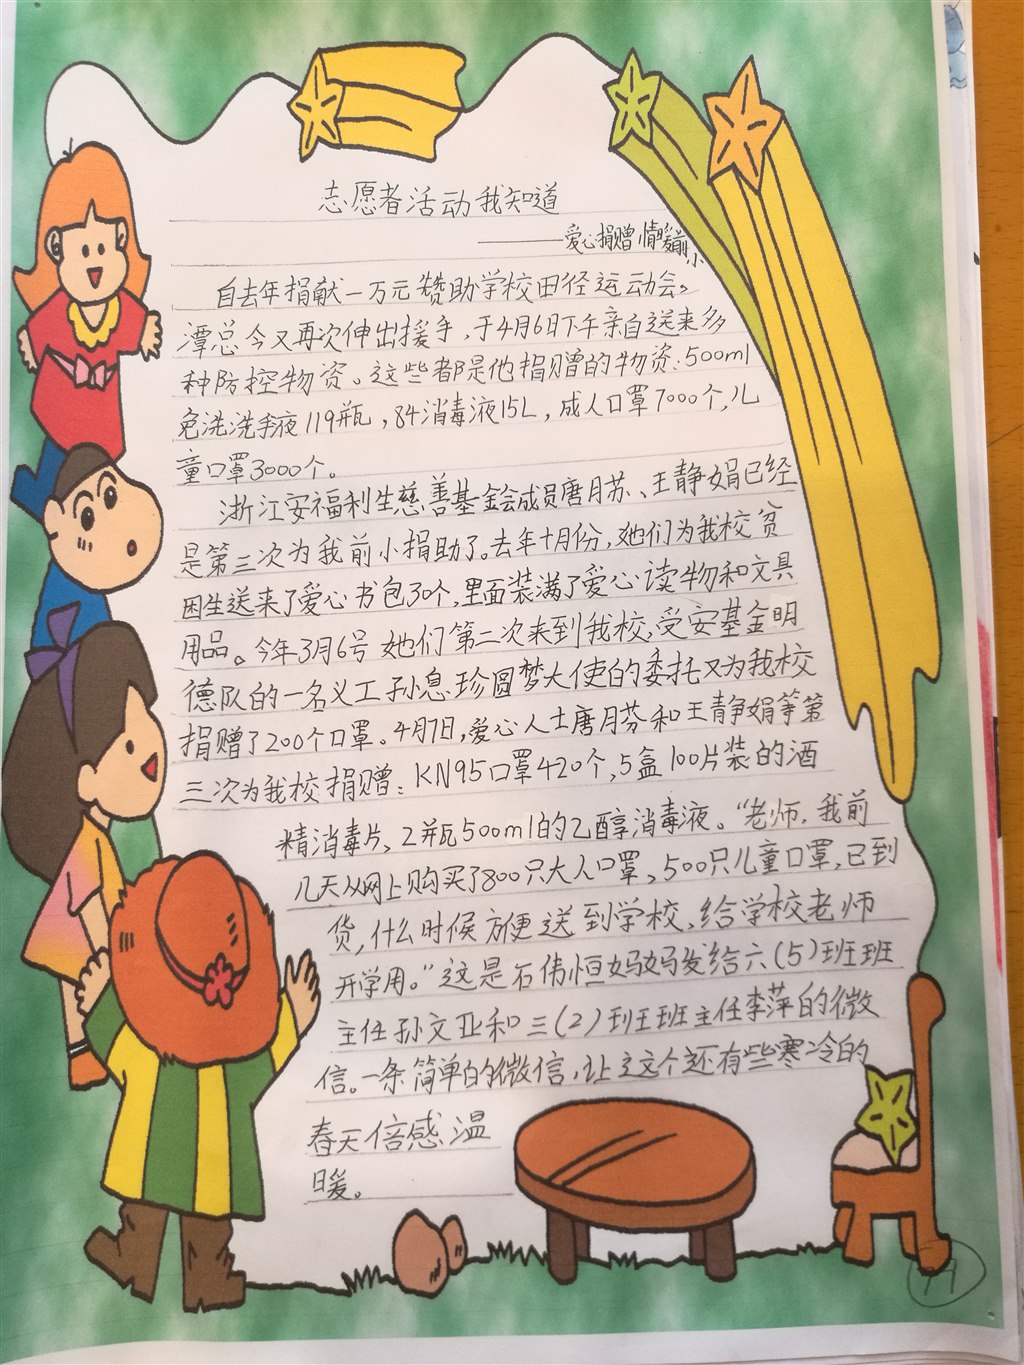 志愿者活动我知道
——爱心捐赠,情暖前小
自去年捐献一万元赞助学校田径运动会,
潭总今又再次伸出援手,于4月6日下午亲自送来多
种防控物资。这些都是他捐赠的物资:500ml
免洗洗手液119瓶,84消毒液15L,成人口罩7000个,儿
童口罩3000个。
浙江安福利生慈善基金会成员唐月芬、王静娟已经
是第三次为我前小捐助了。去年十月份,她们为我校贫
困生送来了爱心书包30个,里面装满了爱心读物和文具
用品。今年3月6号她们第二次来到我校,受安基金明
德队的一名义工孙息珍圆梦大使的委托又为我校
捐赠了200个口罩。4月7日,爱心人士唐月芬和王静娟等第
三次为我校捐赠:KN95口罩420个,5盒100片装的酒
精消毒片、2瓶500ml的乙醇消毒液。“老师,我前
几天从网上购买了800只大人口罩,500只儿童口罩,已到
货,什么时候方便送到学校,给学校老师
开学用。”这是石伟恒妈妈发给六(5)班班
主任孙文亚和三(2)班班主任李萍的微
信。一条简单的微信,让这个还有些寒冷的
春天倍感温
暖。